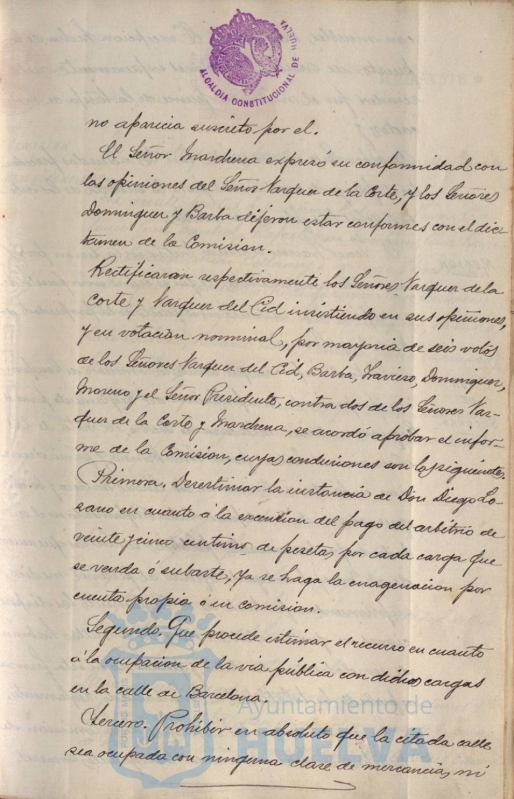 ALCALDIA CONSTITUCIONAL DE HUELVA
no aparecia suscrito por el.
El Señor Marchena expresó su conformidad con
las opiniones del Señor Vazquez de la Corte, y los Señores
Dominguez y Barba dijeron estar conformes con el dic-
tamen de la Comision.
Rectificaron respectivamente los Señores Vazquez de la
Corte y Vazquez del Cid insistiendo en sus opiniones,
y en votacion nominal, por mayoria de seis votos
de los Señores Vazquez del Cid, Barba, Traviezo, Dominguez,
Moreno y el Señor Presidente, contra dos de los Señores Vaz-
quez de la Corte y Marchena, se acordó aprobar el infor-
me de la Comision, cuyas conclusiones son las siguientes.
Primera. Desestimar la instancia de Don Diego Lo-
zano en cuanto á la excension del pago del arbitrio de
veinte y cinco centimos de pesetas por cada carga que
se venda ó subaste, ya se haga la enagenacion por
cuenta propia ó en comision.
Segundo. Que procede estimar el recurso en cuanto
á la ocupacion de la via pública con dichas cargas
en la calle de Barcelona.
Tercero. Prohibir en absoluto que la citada calle
sea ocupada con ninguna clase de mercancia, ni
Ayuntamiento de
HUELVA